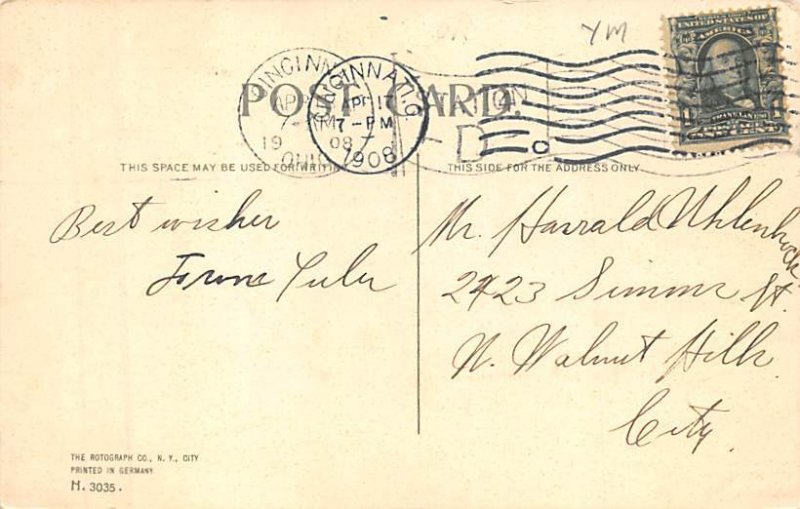 YM
UNITED STATES OF AMERICA
FRANKLIN
CINCINNATI
APR 17
7-PM
1908
OHIO
CINCINNATI, O.
APR 17
7-PM
1908
STATION
D
POST CARD.
THIS SPACE MAY BE USED FOR WRITING
THIS SIDE FOR THE ADDRESS ONLY
Best wisher
Mr. Harrald
2423 Simms St.
N. Walnut Hills
City.
THE ROTOGRAPH CO., N. Y., CITY
PRINTED IN GERMANY
H. 3035.